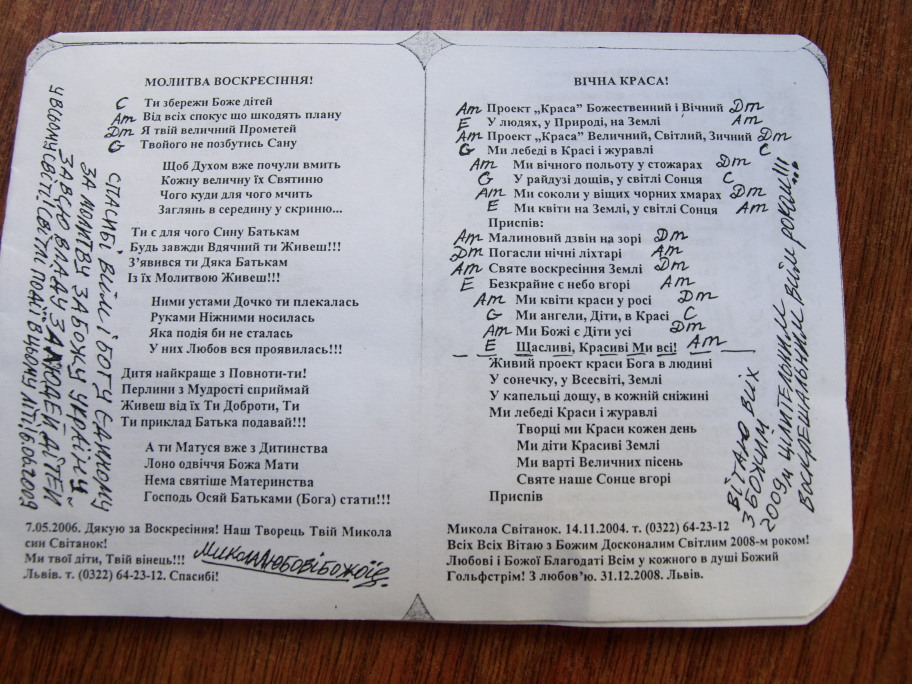 МОЛИТВА ВОСКРЕСІННЯ!
C Ти збережи Боже дітей
Am Від всіх спокус що шкодять плану
Dm Я твій величний Прометей
G Твойого не позбутись Сану
Щоб Духом вже почули вмить
Кожну величну їх Святиню
Чого куди для чого мчить
Заглянь в середину у скриню...
Ти є для чого Сину Батькам
Будь завжди Вдячний ти Живеш!!!
З’явився ти Дяка Батькам
Із їх Молитвою Живеш!!!
Ними устами Дочко ти плекалась
Руками Ніжними носилась
Яка подія би не сталась
У них Любов вся проявилась!!!
Дитя найкраще з Повноти-ти!
Перлини з Мудрості сприймай
Живеш від їх Ти Доброти, Ти
Ти приклад Батька подавай!!!
А ти Матуся вже з Дитинства
Лоно одвіччя Божа Мати
Нема святіше Материнства
Господь Осяй Батьками (Бога) стати!!!
7.05.2006. Дякую за Воскресіння! Наш Творець Твій Микола
син Світанок!
Ми твої діти, Твій вінець!!! МиколаЛюбовіБожоїїє.
Львів. т. (0322) 64-23-12. Спасибі!
СПАСИБІ ВАМ І БОГУ ЄДИНОМУ
ЗА МОЛИТВУ ЗА БОЖУ УКРАЇНУ
ЗА ВСЮ ВЛАДУ ЗА ЛЮДЕЙ ДІТЕЙ
У ВСЬОМУ СВІТІ! СВІТЛІ ПОДІЇ В ЦЬОМУ ЛІТІ! 6.06.2009
ВІЧНА КРАСА!
Am Проект „Краса” Божественний і Вічний Dm
E У людях, у Природі, на Землі Am
Am Проект „Краса” Величний, Світлий, Зичний Dm
G Ми лебеді в Красі і журавлі C
Am Ми вічного польоту у стожарах Dm
G У райдузі дощів, у світлі Сонця C
Am Ми соколи у віщих чорних хмарах Dm
E Ми квіти на Землі, у світлі Сонця Am
Приспів:
Am Малиновий дзвін на зорі Dm
Dm Погасли нічні ліхтарі Am
Am Святе воскресіння Землі Dm
E Безкрайне є небо вгорі Am
Am Ми квіти краси у росі Dm
G Ми ангели, Діти, в Красі C
Am Ми Божі є Діти усі Dm
E Щасливі, Красиві Ми всі! Am
Живий проект краси Бога в людині
У сонечку, у Всесвіті, Землі
У капельці дощу, в кожній сніжині
Ми лебеді Краси і журавлі
Творці ми Краси кожен день
Ми діти Красиві Землі
Ми варті Величних пісень
Святе наше Сонце вгорі
Приспів
Микола Світанок. 14.11.2004. т. (0322) 64-23-12
Всіх Всіх Вітаю з Божим Досконалим Світлим 2008-м роком!
Любові і Божої Благодаті Всім у кожного в душі Божий
Гольфстрім! З любов’ю. 31.12.2008. Львів.
ВІТАЮ ВСІХ
З БОЖИМ
2009м ЦІЛИТЕЛЬНИМ
ВОСКРЕШАЛЬНИМ ВСІМ РОКОМ!!!...